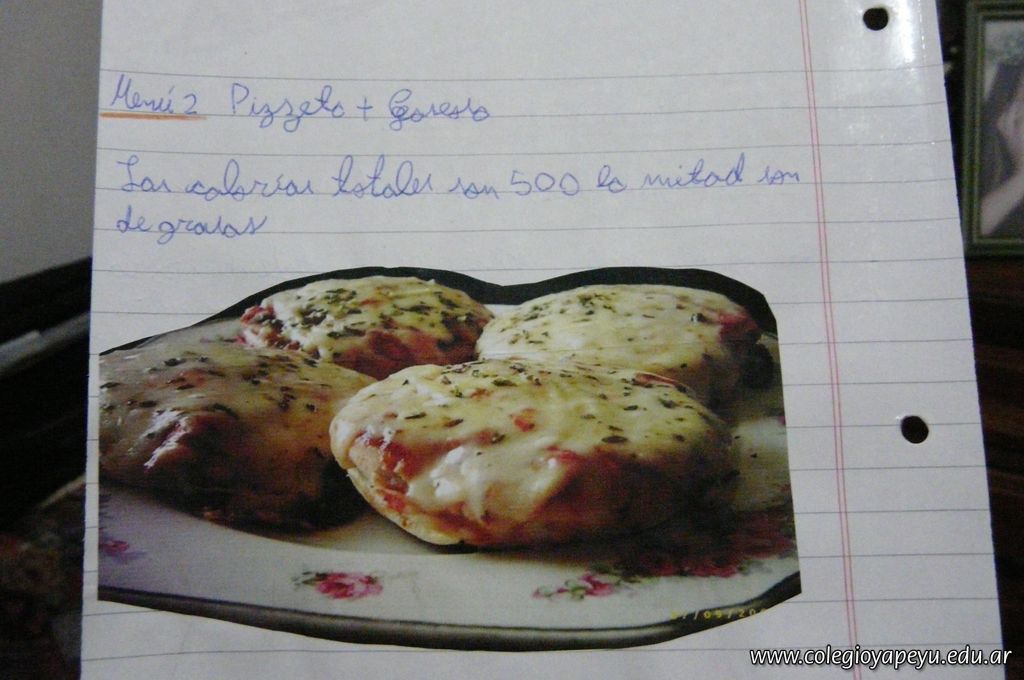 Menú 2 Pizzeta + Gaseosa
Las calorías totales son 500 la mitad son
de grasas
www.colegioyapeyu.edu.ar